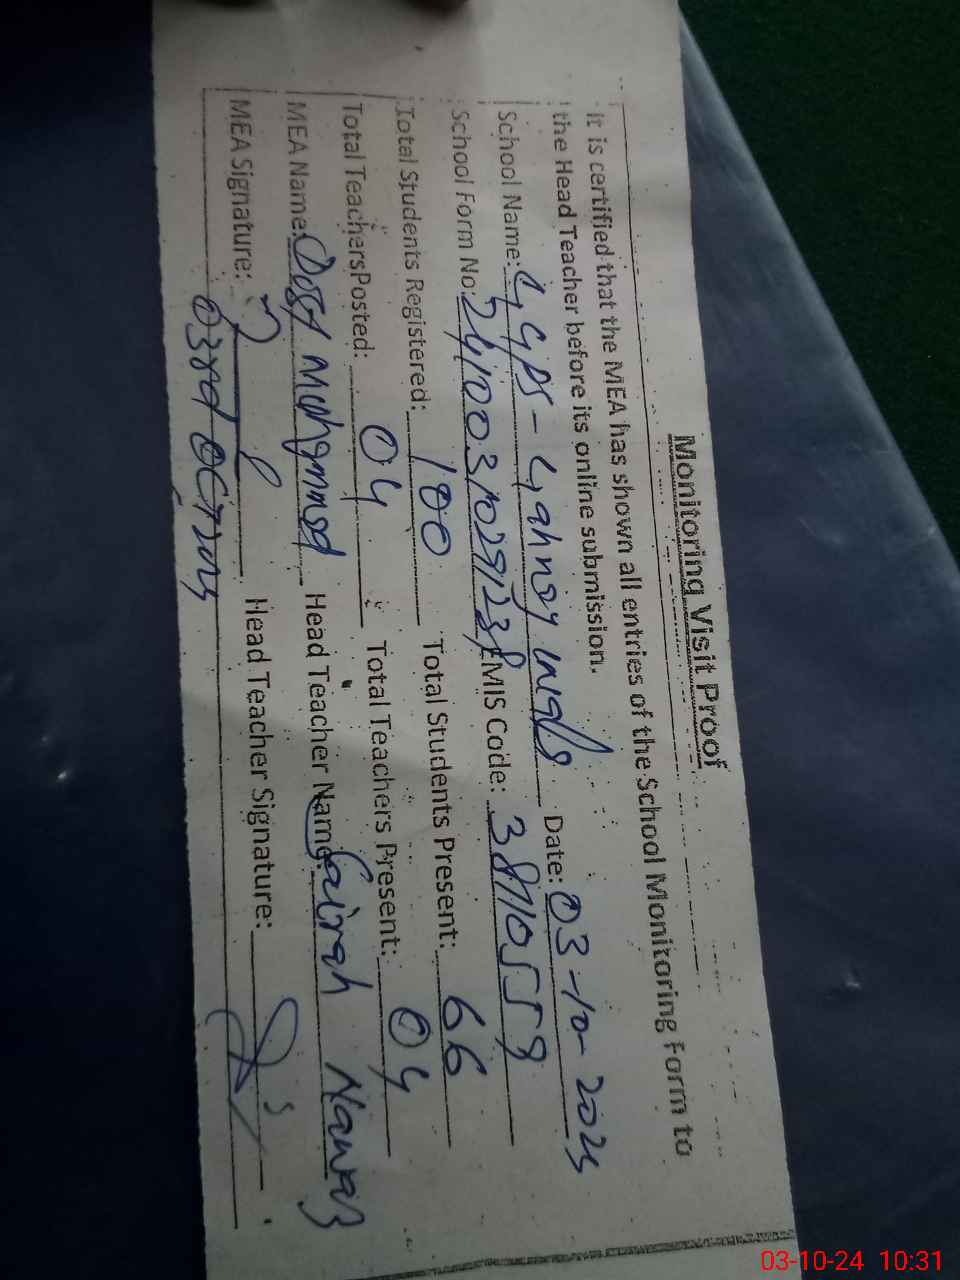 Monitoring Visit Proof
It is certified that the MEA has shown all entries of the School Monitoring Form to
the Head Teacher before its online submission.
School Name: GGPS - Date: 03-10-2024
School Form No: EMIS Code:
Total Students Registered: 100 Total Students Present: 66
Total Teachers Posted: 04 Total Teachers Present: 04
MEA Name: Dost Muhammad Head Teacher Name: Nawaz
MEA Signature: Head Teacher Signature:
03rd OCT
03-10-24 10:31